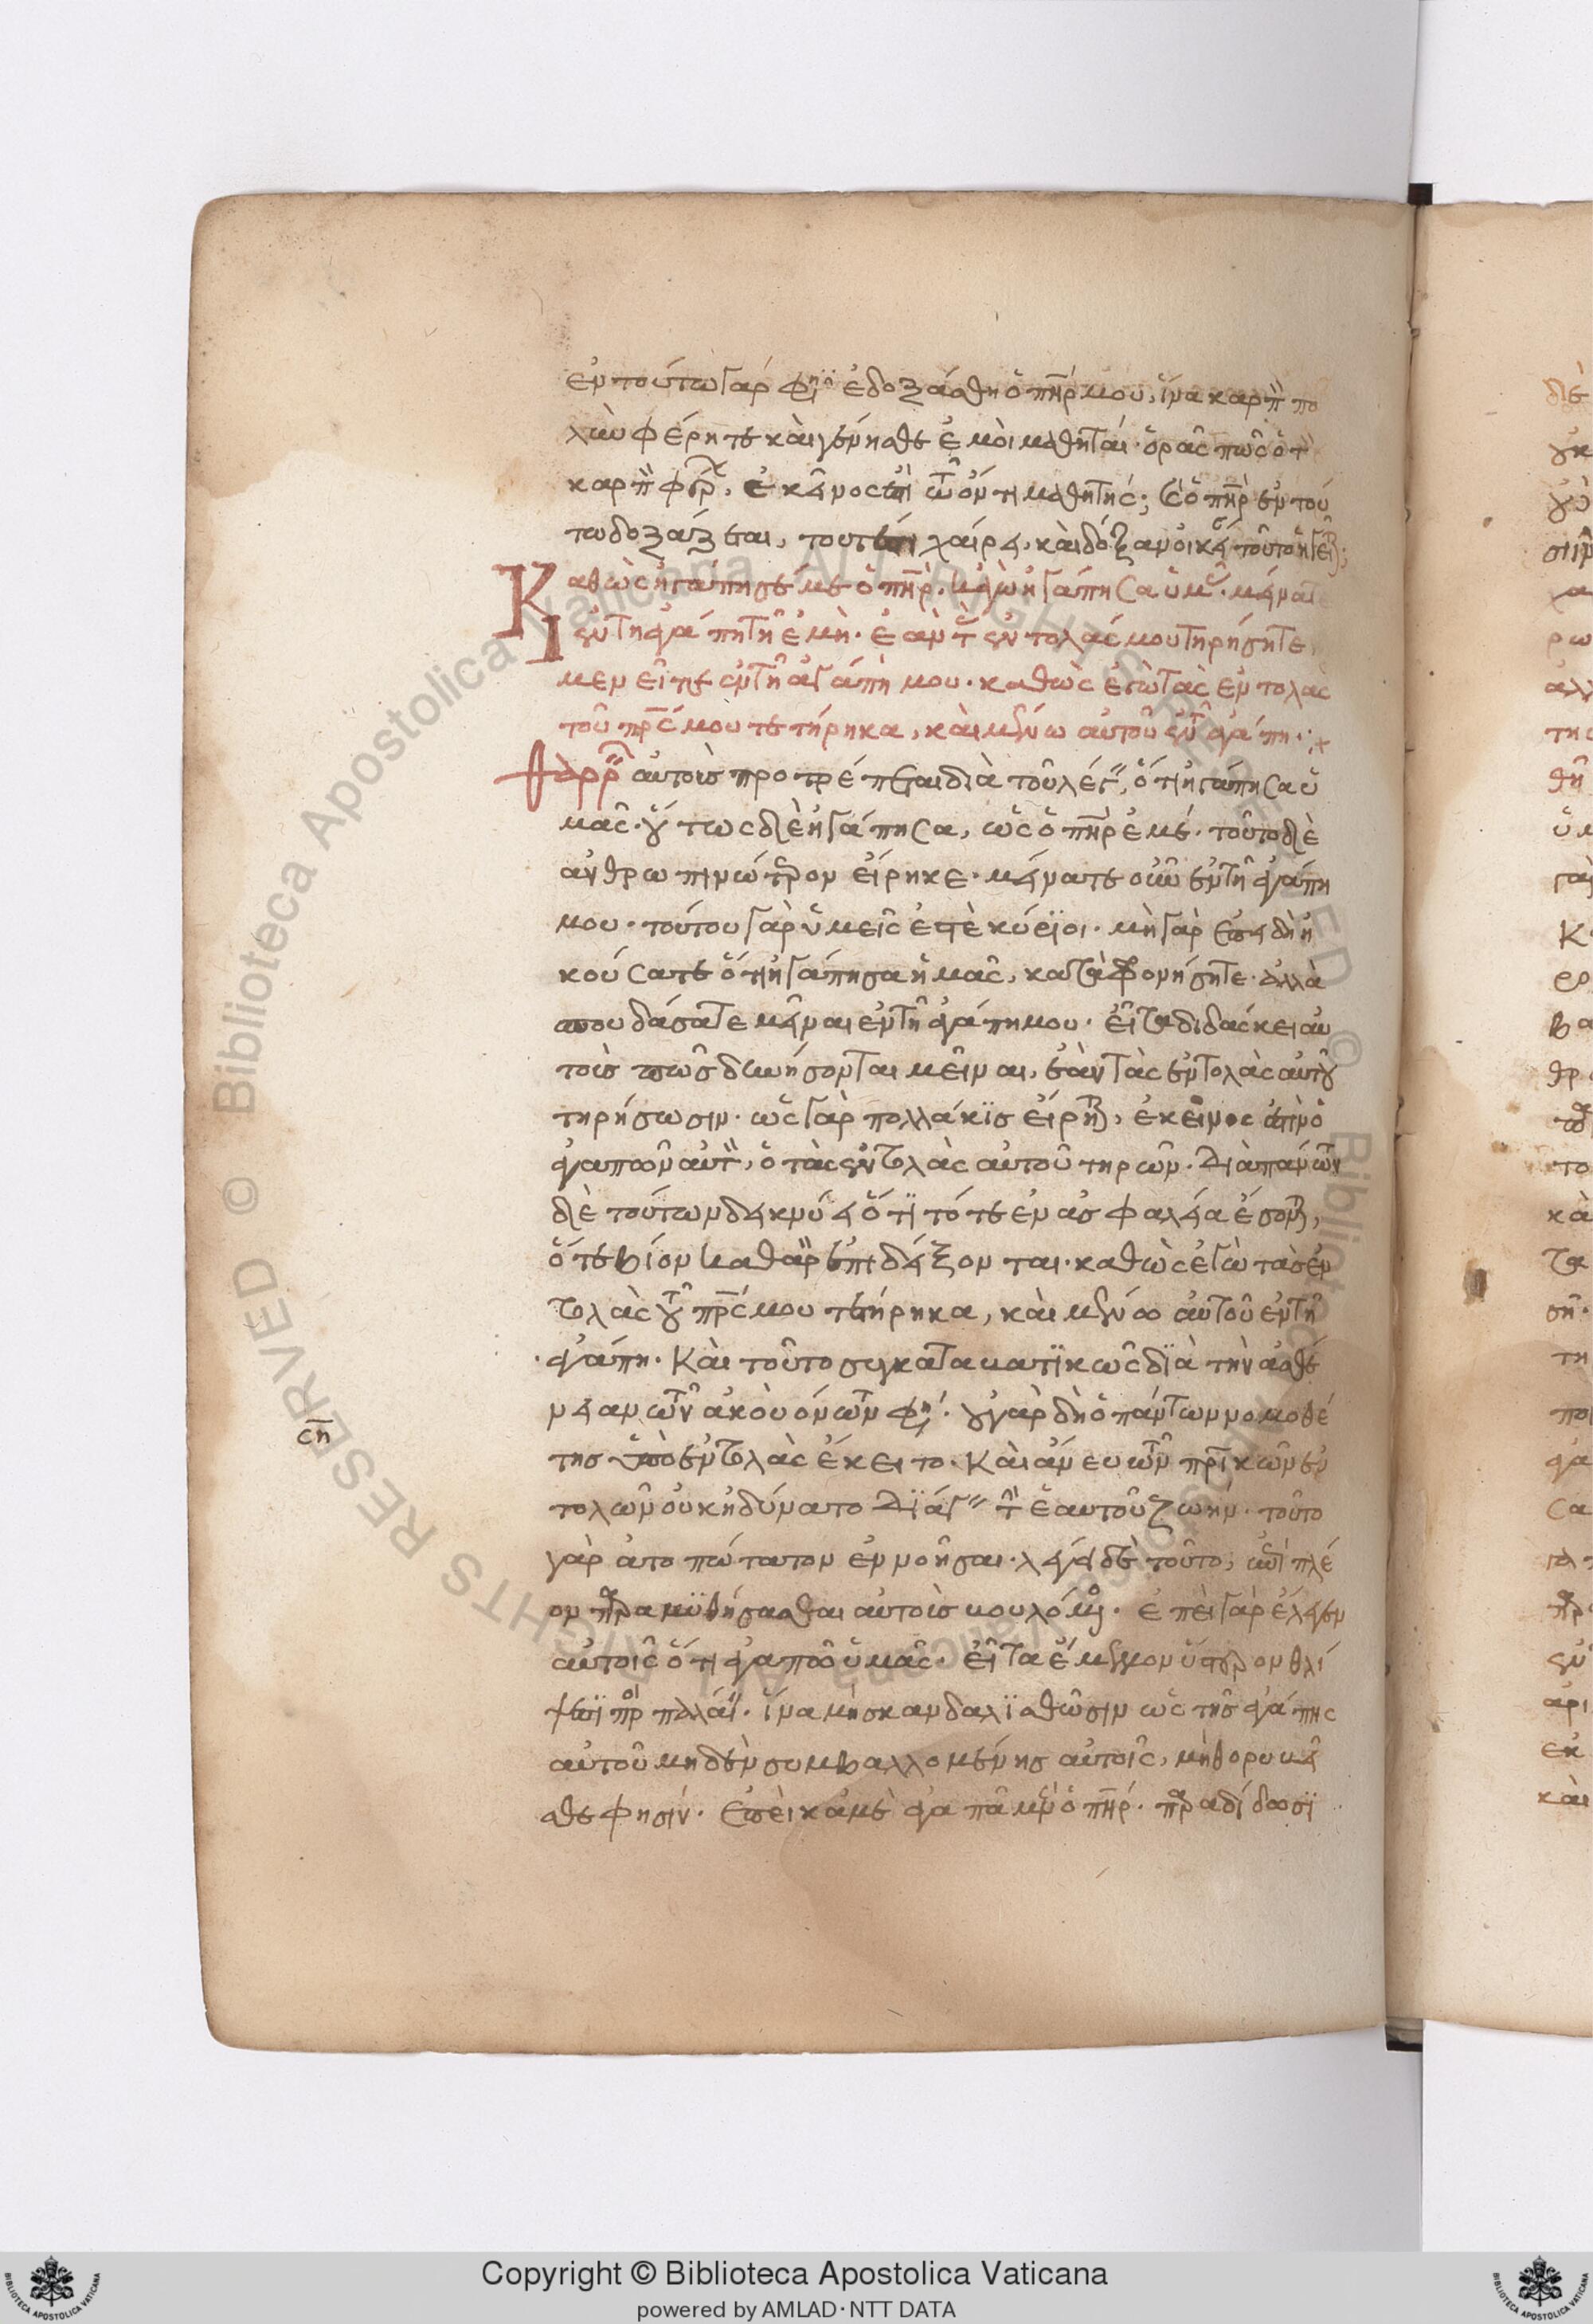 ἐν τούτω γάρ φησιν ἐδοξάσθη ὁ πηρ μου, ἵνα καρπὸν πο
λὺν φέρητε καὶ γένησθε ἐμοὶ μαθηταί· ὁρᾶς πῶς ὁ τὸν
καρπὸν φέρων, ἐκεῖνός ἐστι τῶ ὄντι μαθητής; καὶ ὁ πηρ ἐν τού
τω δοξάζεται, τουτέστι χαίρει, καὶ δόξαν οἰκείαν τοῦτο ἡγεῖται;
Καθὼς ἠγάπησέ με ὁ πηρ. κἀγὼ ἠγάπησα ὑμᾶς. μείνατε
ἐν τῆ ἀγάπη τῆ ἐμῆ. ἐὰν τὰς ἐντολάς μου τηρήσητε,
μενεῖτε ἐν τῆ ἀγάπη μου. καθὼς ἐγὼ τὰς ἐντολὰς
τοῦ πρς μου τετήρηκα, καὶ μένω αὐτοῦ ἐν τῆ ἀγάπη.
Θαρρεῖν αὐτοὺς προτρέπεται διὰ τοῦ λέγειν, ὅτι ἠγάπησα ὑ
μᾶς. οὕτως δὲ ἠγάπησα, ὡς ὁ πηρ ἐμέ. τοῦτο δὲ
ἀνθρωπινώτερον εἴρηκε. μείνατε οὖν ἐν τῆ ἀγάπη
μου. τούτου γὰρ ὑμεῖς ἐστὲ κύριοι. μὴ γὰρ ἐπειδὴ ἠ
κούσατε ὅτι ἠγάπησα ὑμᾶς, καταφρονήσητε. ἀλλὰ
σπουδάσατε μεῖναι ἐν τῆ ἀγάπη μου. εἶτα διδάσκει αὐ
τοὺς πῶς δυνήσονται μεῖναι, ἐὰν τὰς ἐντολὰς αὐτοῦ
τηρήσωσιν. ὡς γὰρ πολλάκις εἴρηται, ἐκεῖνος ἐστιν ὁ
ἀγαπῶν αὐτὸν, ὁ τὰς ἐντολὰς αὐτοῦ τηρῶν. διὰ πάντων
δὲ τούτων δεικνύει ὅτι τότε ἐν ἀσφαλεία ἔσονται,
ὅτε βίον καθαρὸν ἐπιδείξονται. καθὼς ἐγὼ τὰς ἐν
τολὰς τοῦ πρς μου τετήρηκα, καὶ μένω αὐτοῦ ἐν τῆ
ἀγάπη. Καὶ τοῦτο συγκαταβατικῶς διὰ τὴν ἀσθέ
νειαν τῶν ἀκουόντων φησί. οὐ γὰρ δὴ ὁ πάντων νομοθέ
της ὑπὸ ἐντολὰς ἔκειτο. Καὶ ἄνευ τῶν πρικῶν ἐν
τολῶν οὐκ ἠδύνατο διάγειν τὴν ἑαυτοῦ ζωήν. τοῦτο
γὰρ ἀτοπώτατον ἐννοῆσαι. λέγει δὲ τοῦτο, ἐπὶ πλέ
ον παραμυθήσασθαι αὐτοὺς βουλόμενος. ἐπεὶ γὰρ ἔλεγεν
αὐτοῖς ὅτι ἀγαπῶ ὑμᾶς. εἶτα ἔμελλον ὕστερον θλί
ψεσι προσπαλαίειν. ἵνα μὴ σκανδαλισθῶσιν ὡς τῆς ἀγάπης
αὐτοῦ μηδὲν συμβαλλομένης αὐτοῖς, μὴ θορυβεῖ
σθε φησίν. Ἐπεὶ κἀμὲ ἀγαπᾶ μὲν ὁ πηρ. παραδίδωσι
ση